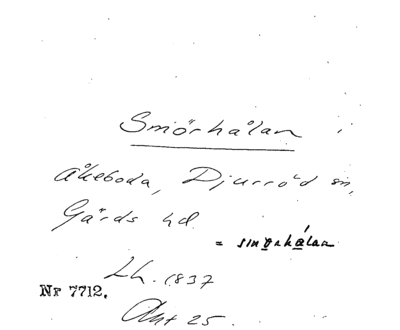 Smörhålan
Åkeboda, Djurröd sn,
Gärds hd.
= smørhálan
Lh. 1837
Nr 7712.
Akt 25.